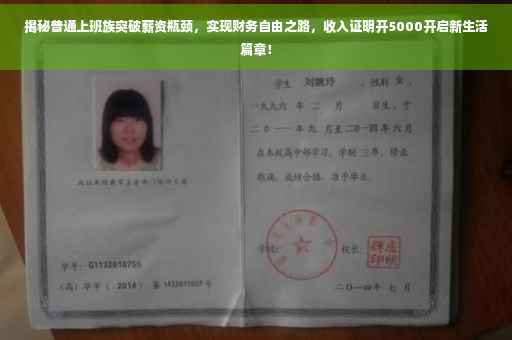 揭秘普通上班族突破薪资瓶颈，实现财务自由之路，收入证明开5000开启新生活
篇章！
学生 刘婉玲 ，性别 女 ，
一九九六 年 二 月 日生，于
二〇一一年 九 月至二〇一四年 六 月
在本校高中部学习，学制 三年，修业
期满，成绩合格，准予毕业。
学校： 校长：
学号：G1132010755
（高）毕字（ 2014 ）第 1432011607 号
二〇一四年 七 月